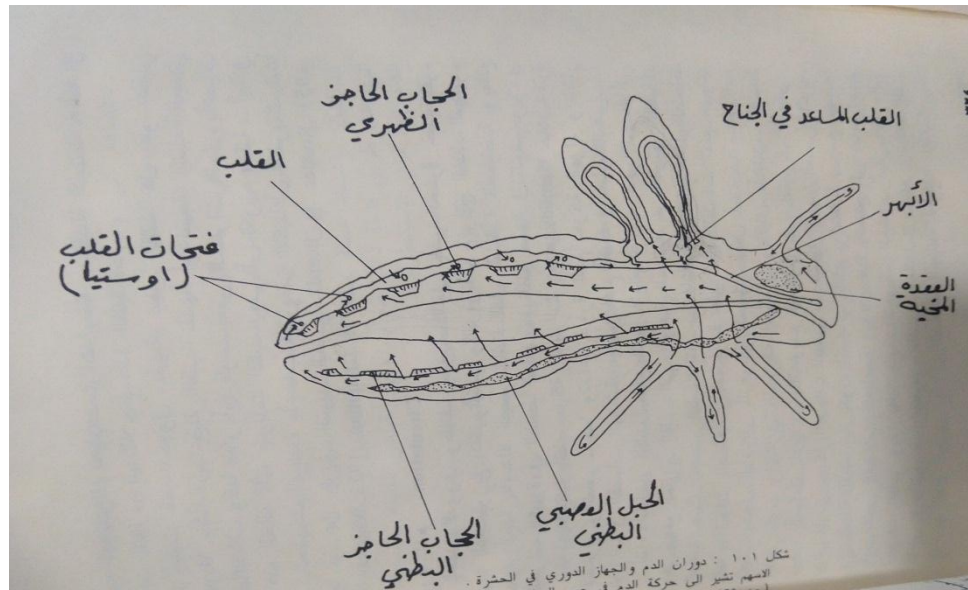 الحجاب الحاجز
الظهري
القلب المساعد في الجناح
القلب
الأبهر
فتحات القلب
(اوستيا)
العقدة
المخية
الحبل العصبي
البطني
الحجاب الحاجز
البطني
شكل ١٠١ : دوران الدم والجهاز الدوري في الحشرة .
الاسهم تشير الى حركة الدم في